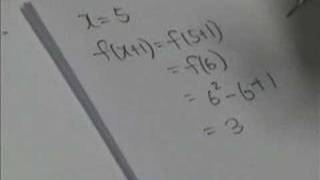 x=5
f(x+1)=f(5+1)
=f(6)
=6²-6+1
=3